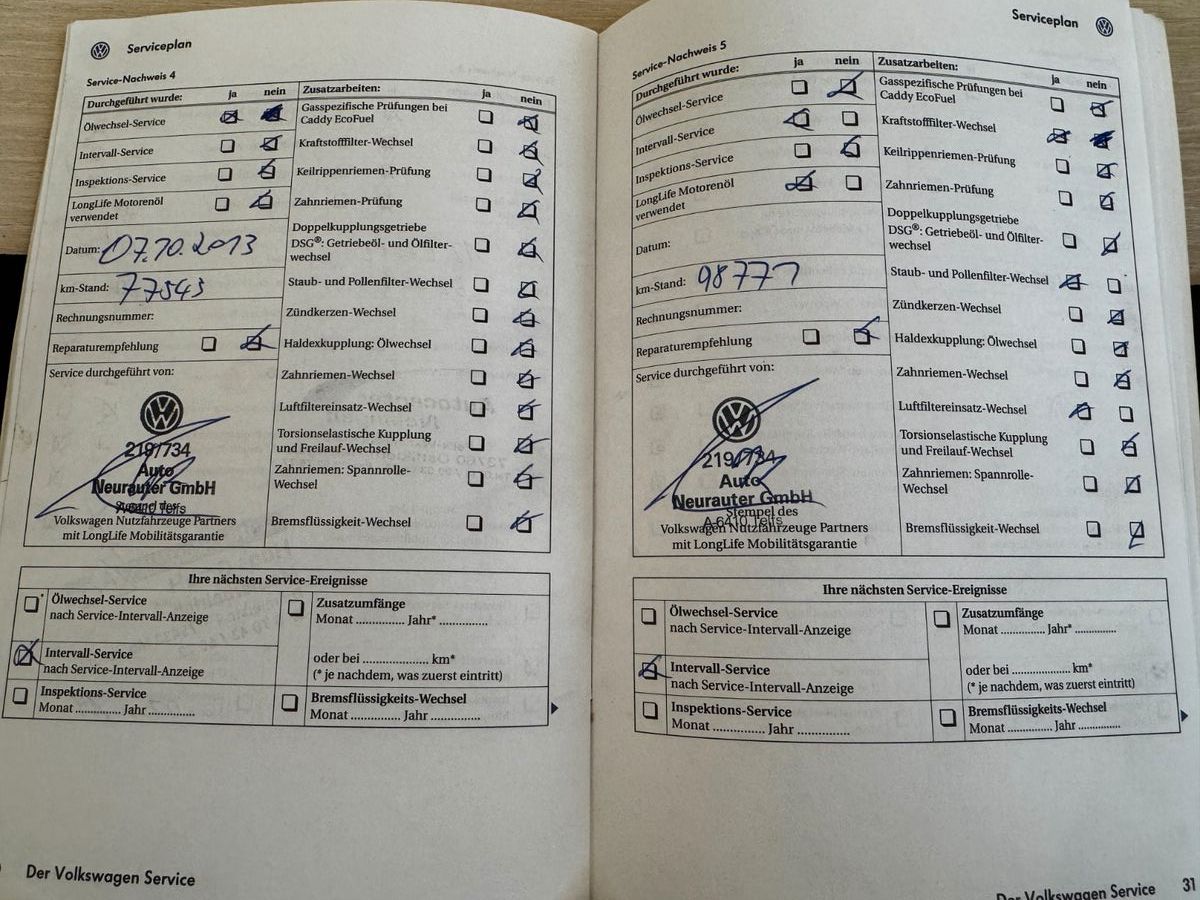 Serviceplan
Service-Nachweis 4
Durchgeführt wurde: ja nein
Ölwechsel-Service
Intervall-Service
Inspektions-Service
LongLife Motorenöl
verwendet
Datum: 07.10.2013
km-Stand: 77543
Rechnungsnummer:
Reparaturempfehlung
Service durchgeführt von:
219/734
Auto
Neurauter GmbH
A-6410 Telfs
Stempel des
Volkswagen Nutzfahrzeuge Partners
mit LongLife Mobilitätsgarantie
Zusatzarbeiten: ja nein
Gasspezifische Prüfungen bei
Caddy EcoFuel
Kraftstofffilter-Wechsel
Keilrippenriemen-Prüfung
Zahnriemen-Prüfung
Doppelkupplungsgetriebe
DSG®: Getriebeöl- und Ölfilter-
wechsel
Staub- und Pollenfilter-Wechsel
Zündkerzen-Wechsel
Haldexkupplung: Ölwechsel
Zahnriemen-Wechsel
Luftfiltereinsatz-Wechsel
Torsionselastische Kupplung
und Freilauf-Wechsel
Zahnriemen: Spannrolle-
Wechsel
Bremsflüssigkeit-Wechsel
Ihre nächsten Service-Ereignisse
Ölwechsel-Service
nach Service-Intervall-Anzeige
Intervall-Service
nach Service-Intervall-Anzeige
Inspektions-Service
Monat ............. Jahr .............
Zusatzumfänge
Monat ............. Jahr* .............
oder bei .................. km*
(* je nachdem, was zuerst eintritt)
Bremsflüssigkeits-Wechsel
Monat ............. Jahr .............
Der Volkswagen Service
Serviceplan
Service-Nachweis 5
Durchgeführt wurde: ja nein
Ölwechsel-Service
Intervall-Service
Inspektions-Service
LongLife Motorenöl
verwendet
Datum:
km-Stand: 98771
Rechnungsnummer:
Reparaturempfehlung
Service durchgeführt von:
219/734
Auto
Neurauter GmbH
A-6410 Telfs
Stempel des
Volkswagen Nutzfahrzeuge Partners
mit LongLife Mobilitätsgarantie
Zusatzarbeiten: ja nein
Gasspezifische Prüfungen bei
Caddy EcoFuel
Kraftstofffilter-Wechsel
Keilrippenriemen-Prüfung
Zahnriemen-Prüfung
Doppelkupplungsgetriebe
DSG®: Getriebeöl- und Ölfilter-
wechsel
Staub- und Pollenfilter-Wechsel
Zündkerzen-Wechsel
Haldexkupplung: Ölwechsel
Zahnriemen-Wechsel
Luftfiltereinsatz-Wechsel
Torsionselastische Kupplung
und Freilauf-Wechsel
Zahnriemen: Spannrolle-
Wechsel
Bremsflüssigkeit-Wechsel
Ihre nächsten Service-Ereignisse
Ölwechsel-Service
nach Service-Intervall-Anzeige
Intervall-Service
nach Service-Intervall-Anzeige
Inspektions-Service
Monat ............. Jahr .............
Zusatzumfänge
Monat ............. Jahr* .............
oder bei .................. km*
(* je nachdem, was zuerst eintritt)
Bremsflüssigkeits-Wechsel
Monat ............. Jahr .............
Der Volkswagen Service 31